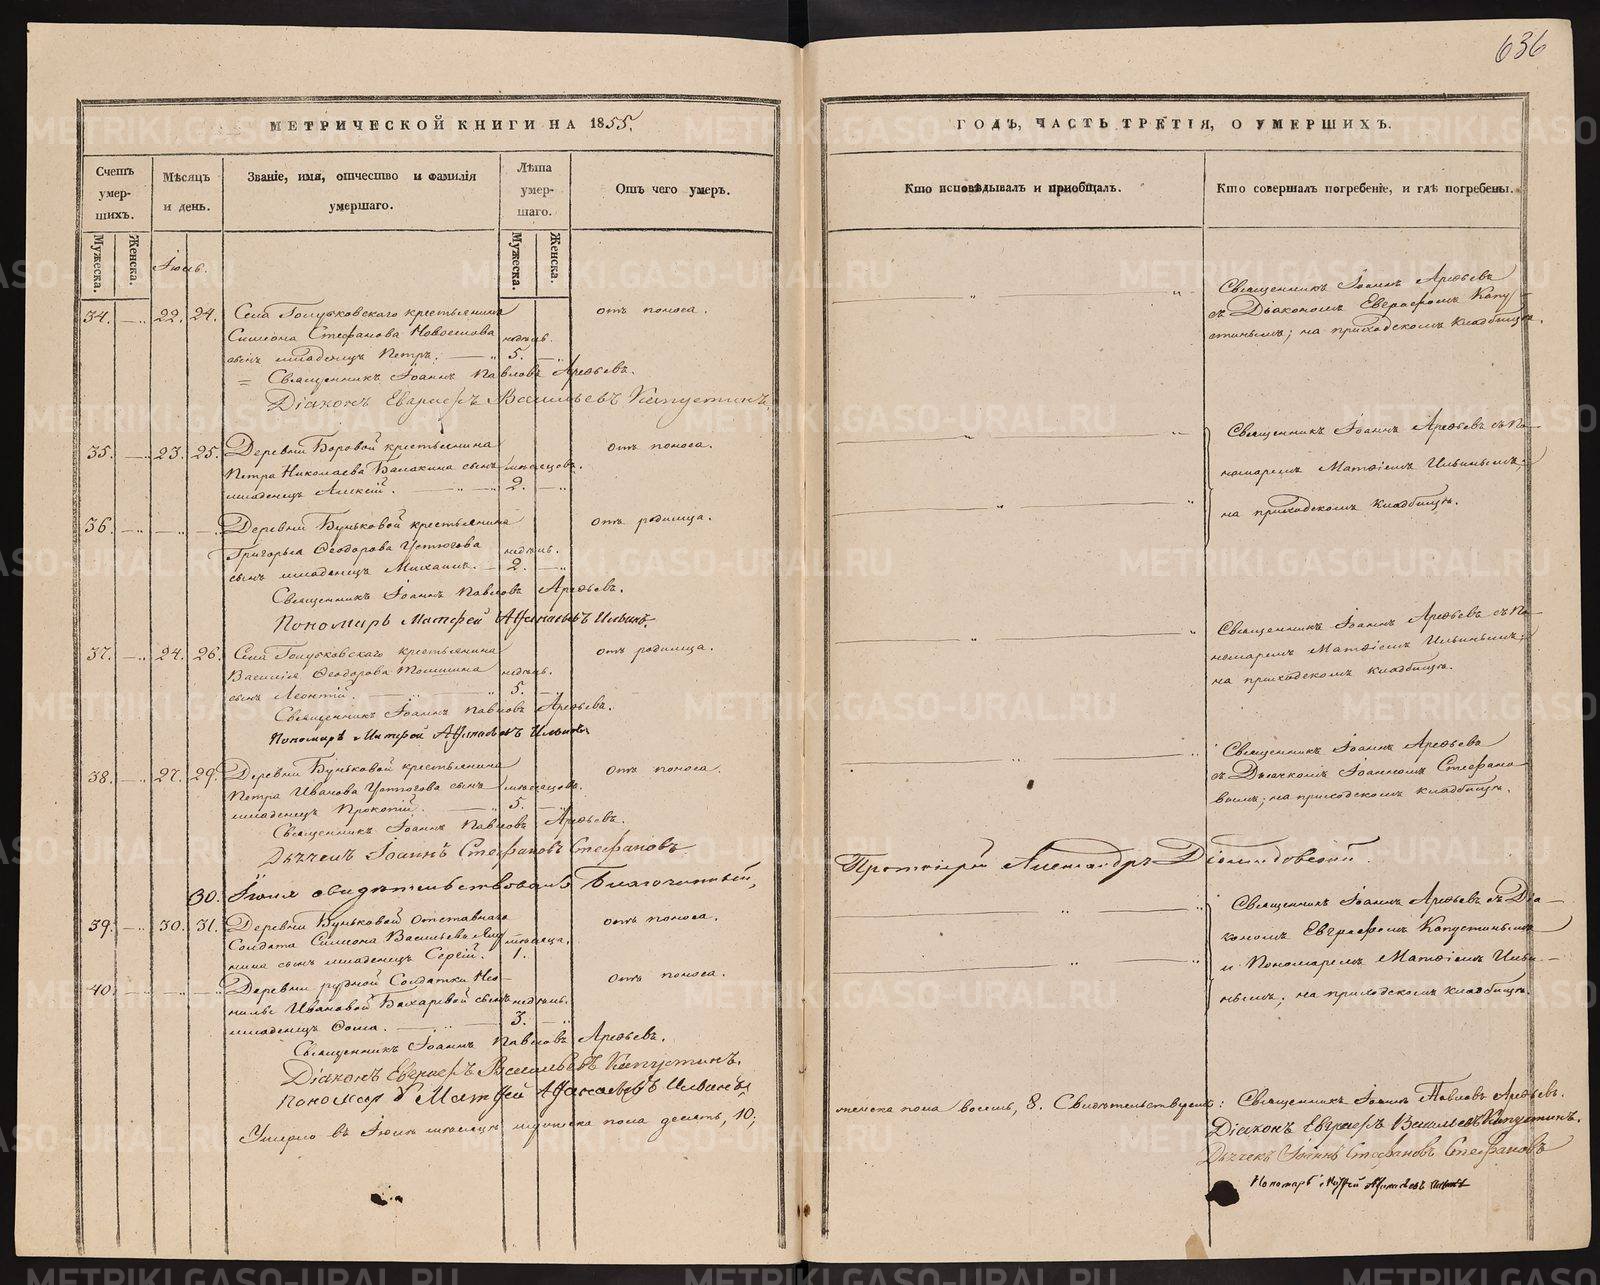 636
МЕТРИЧЕСКОЙ КНИГИ НА 1855.
ГОДЪ, ЧАСТЬ ТРЕТІЯ, О УМЕРШИХЪ.
Счетъ умер-шихъ.
Мужеска.
Женска.
Мѣсяцъ и день.
Званіе, имя, отчество и фамилія умершаго.
Лѣта умер-шаго.
Мужеска.
Женска.
Отъ чего умеръ.
Кто исповѣдывалъ и приобщалъ.
Кто совершалъ погребеніе, и гдѣ погребены.
Іюль.
34. 22. 24. Села Голубковскаго крестьянина отъ поноса.
Симеона Стефанова Новоселова недѣль.
сынъ младенецъ Петръ. 5.
Священникъ Іоаннъ Павловъ Арефьевъ.
Діаконъ Евграфъ Васильевъ Капустинъ.
Священникъ Іоаннъ Арефьевъ
съ Діакономъ Евграфомъ Капу-
стинымъ; на приходскомъ кладбищѣ.
35. 23. 25. Деревни Боровой крестьянина отъ поноса.
Петра Николаева Балакина сынъ мѣсяцовъ.
младенецъ Алексій. 2.
Священникъ Іоаннъ Арефьевъ съ По-
номаремъ Матѳіемъ Ильинымъ;
на приходскомъ кладбищѣ.
36. Деревни Буньковой крестьянина отъ родимца.
Григорья Ѳеодорова Устюгова недѣль.
сынъ младенецъ Михаилъ. 2.
Священникъ Іоаннъ Павловъ Арефьевъ.
Пономарь Матфей Афанасьевъ Ильинъ.
37. 24. 26. Села Голубковскаго крестьянина отъ родимца.
Василія Ѳеодорова недѣль.
сынъ Леонтій. 5.
Священникъ Іоаннъ Павловъ Арефьевъ.
Пономарь Матфей Афанасьевъ Ильинъ
Священникъ Іоаннъ Арефьевъ съ По-
номаремъ Матѳіемъ Ильинымъ;
на приходскомъ кладбищѣ.
38. 27. 29. Деревни Буньковой крестьянина отъ поноса.
Петра Иванова Устюгова сынъ мѣсяцовъ.
младенецъ Прокопій. 5.
Священникъ Іоаннъ Павловъ Арефьевъ.
Дьячекъ Іоаннъ Стефановъ Стефановъ
Священникъ Іоаннъ Арефьевъ
съ Дьячкомъ Іоанномъ Стефано-
вымъ; на приходскомъ кладбищѣ.
30. Іюля свидѣтельствовалъ Благочинный,
Протоіерей Александръ Діомидовскій.
39. 30. 31. Деревни Буньковой Отставнаго отъ поноса.
Солдата Симеона Васильева мѣсяца.
нина сынъ младенецъ Сергій. 1.
Священникъ Іоаннъ Арефьевъ съ Діа-
кономъ Евграфомъ Капустинымъ
и Пономаремъ Матѳіемъ Ильи-
нымъ; на приходскомъ кладбищѣ.
40. Деревни рудной Солдатки Нео- отъ поноса.
нилы Ивановой Бахаревой сынъ недѣль.
младенецъ Ѳома. 3.
Священникъ Іоаннъ Павловъ Арефьевъ.
Діаконъ Евграфъ Васильевъ Капустинъ.
Пономарь Матфей Афанасьевъ Ильинъ
Умерло въ Іюлѣ мѣсяцѣ мужеска пола десять, 10;
женска пола восемь, 8. Свидѣтельствуемъ: Священникъ Іоаннъ Павловъ Арефьевъ.
Діаконъ Евграфъ Васильевъ Капустинъ.
Дьячекъ Іоаннъ Стефановъ Стефановъ
Пономарь Матфей Афанасьевъ Ильинъ
METRIKI.GASO-URAL.RU